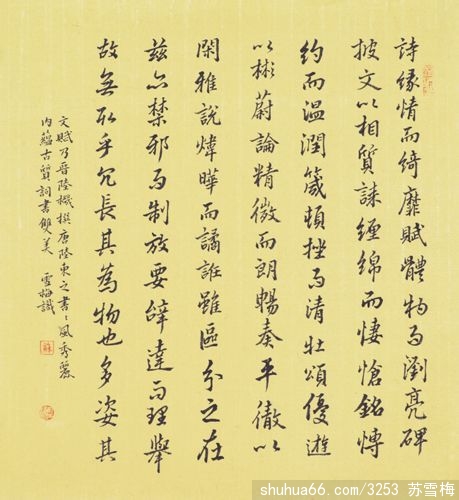 詩緣情而綺靡賦體物而瀏亮碑
披文以相質誄纏綿而悽愴銘博
約而溫潤箴頓挫而清壯頌優遊
以彬蔚論精微而朗暢奏平徹以
閑雅說煒曄而譎誑雖區分之在
茲亦禁邪而制放要辭達而理舉
故無取乎冗長其為物也多姿其
文賦乃晉陸機撰唐陸柬之書〻風秀麗
內蘊古質詞書雙美 雪梅識
shuhua66.com/3253 苏雪梅